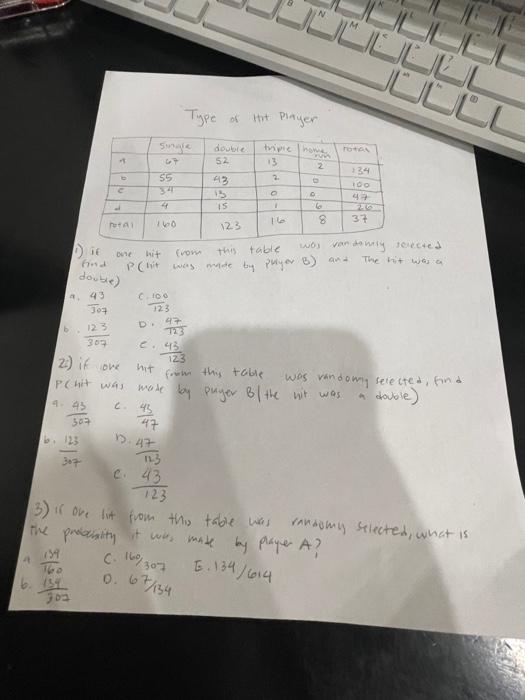 Type of Hit Player
single double triple home run total
a 67 52 13 2 134
b 55 43 2 0 100
c 34 13 0 0 47
d 4 15 1 6 26
total 160 123 16 8 37
1) if one hit from this table was randomly selected
find P(hit was made by player B) and The hit was a
double)
a. 43/307 C. 100/123
b. 123/307 D. 47/123
e. 43/123
2) if one hit from this table was randomy selected, find
P(hit was made by player B| the hit was a double)
a. 43/307 C. 43/47
b. 123/307 D. 47/123
e. 43/123
3) if one hit from this table was randomy selected, what is
the probability it was made by player A?
a 134/160 C. 160/307 E. 134/614
b. 134/307 D. 67/134
B N M